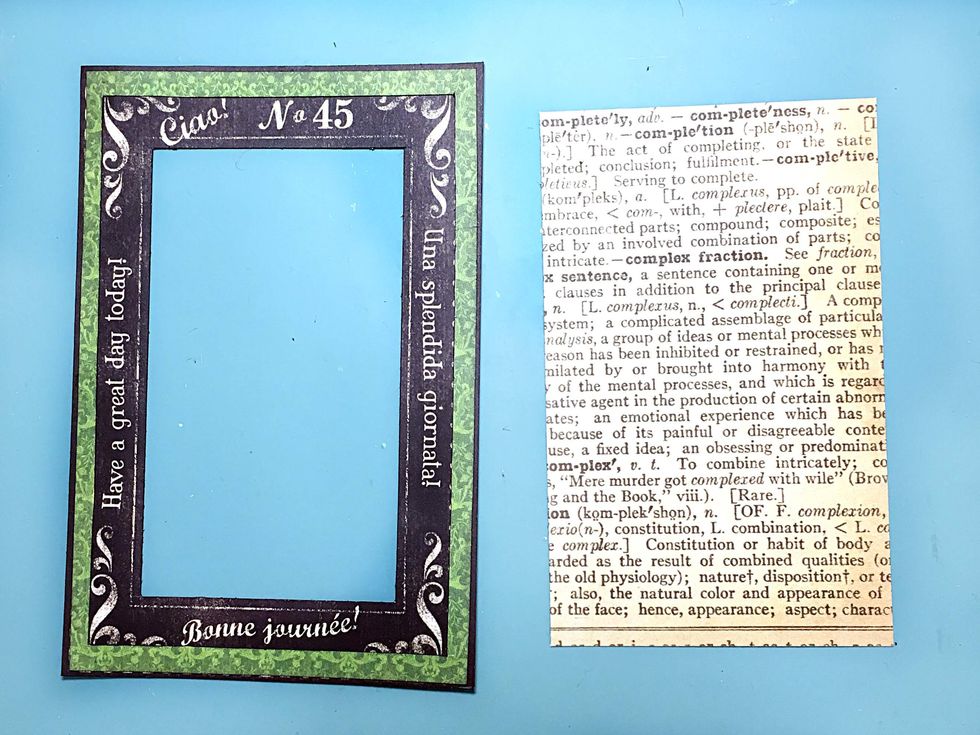 Ciao! No 45
Have a great day today!
Una splendida giornata!
Bonne journée!
om-plete'ly, adv. — com-plete'ness, n. — co
plē'tėr), n. — com-ple'tion (-plē'shọn), n. [I
n-).] The act of completing, or the state
pleted; conclusion; fulfilment. — com-ple'tive,
leticus.] Serving to complete.
(kom'pleks), a. [L. complexus, pp. of comple
mbrace, < com-, with, + plectere, plait.] Co
terconnected parts; compound; composite; es
zed by an involved combination of parts; co
intricate. — complex fraction. See fraction,
x sentence, a sentence containing one or mo
clauses in addition to the principal clause
, n. [L. complexus, n., < complecti.] A comp
ystem; a complicated assemblage of particula
nalysis, a group of ideas or mental processes wh
eason has been inhibited or restrained, or has
milated by or brought into harmony with t
y of the mental processes, and which is regard
sative agent in the production of certain abnorm
ates; an emotional experience which has be
because of its painful or disagreeable conte
use, a fixed idea; an obsessing or predominat
om-plex', v. t. To combine intricately; co
s, “Mere murder got complexed with wile” (Brov
g and the Book,” viii.). [Rare.]
ion (kọm-plek'shọn), n. [OF. F. complexion,
exio(n-), constitution, L. combination, < L. co
e complex.] Constitution or habit of body a
arded as the result of combined qualities (or
the old physiology); nature†, disposition†, or te
; also, the natural color and appearance of
of the face; hence, appearance; aspect; charac